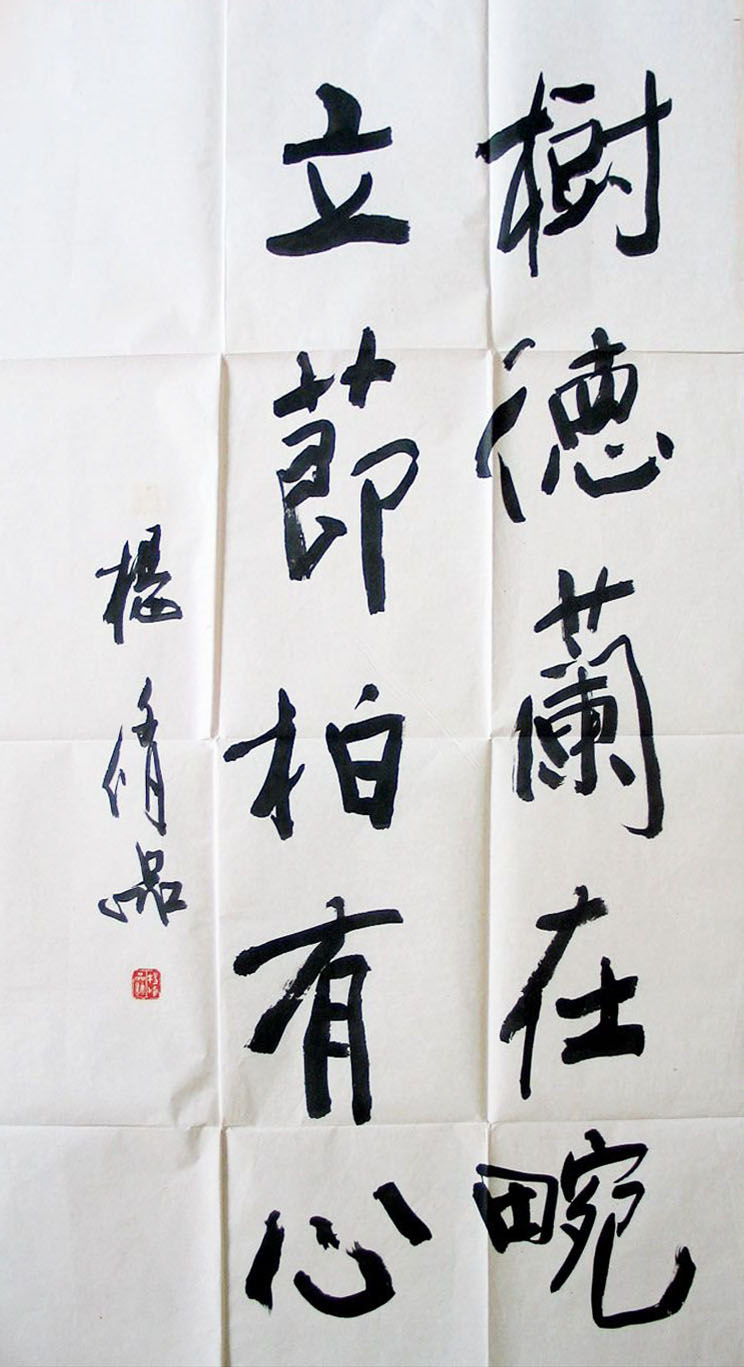 樹德蘭在畹
立莭柏有心
楊脩品